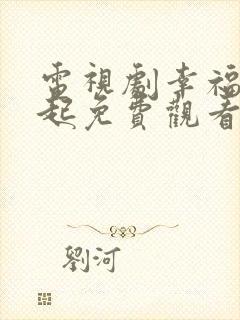 電視劇幸福
起免費觀看
劉河